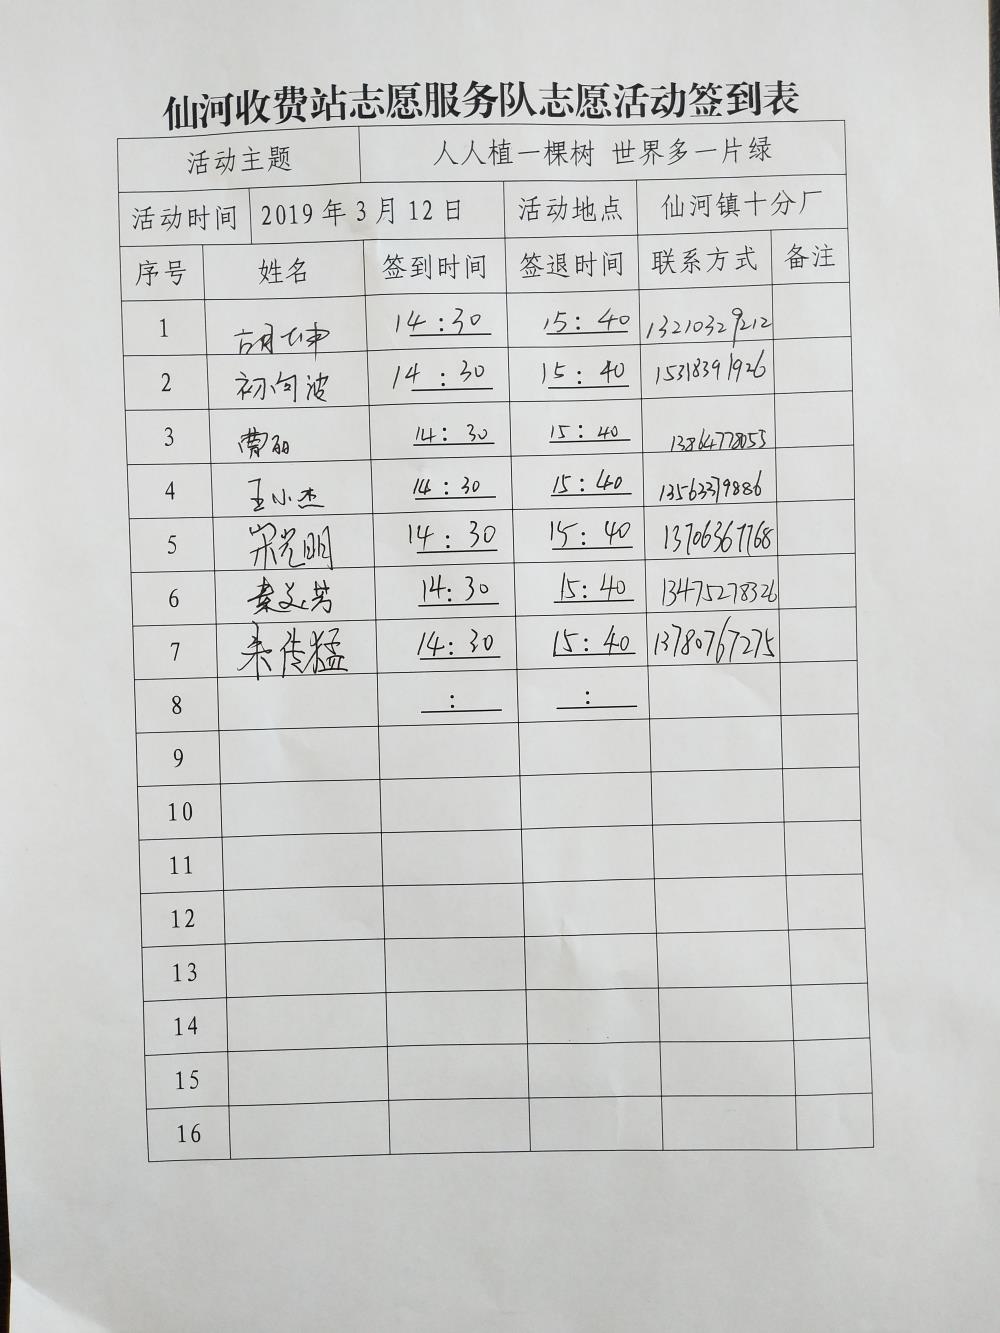 仙河收费站志愿服务队志愿活动签到表
活动主题 人人植一棵树 世界多一片绿
活动时间 2019年3月12日 活动地点 仙河镇十分厂
序号 姓名 签到时间 签退时间 联系方式 备注
1 14:30 15:40 13210329212
2 初向波 14:30 15:40 15318391926
3 曹丽 14:30 15:40 13864778055
4 王小杰 14:30 15:40 13563379886
5 宋光明 14:30 15:40 13706367768
6 14:30 15:40 13475278326
7 传猛 14:30 15:40 13780767275
8 : :
9
10
11
12
13
14
15
16